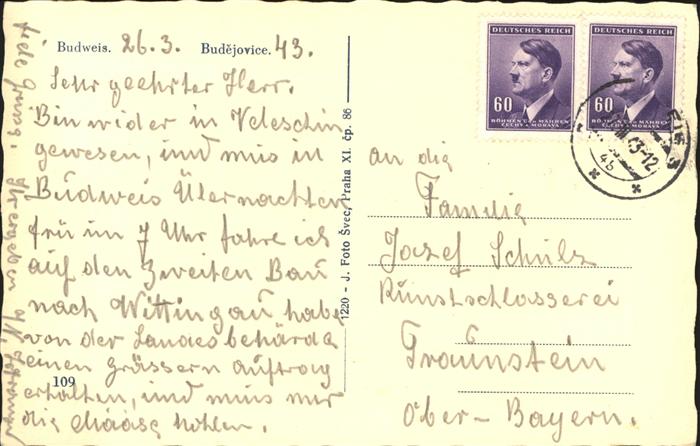 Budweis. 26.3. Budějovice. 43.
Sehr geehrter Herr.
Bin wider in Veleschin
gewesen, und mus in
Budweis Übernachten
frü im 7 Uhr fahre ich
auf den Zweiten Bau
nach Wittingau habe
von der Landesbehärde
einen grässern auftrag
erhalten, und mus mir
die Määse hohlen.
109
1220 - J. Foto Švec, Praha XI. čp. 86
DEUTSCHES REICH
60
BÖHMEN UND MÄHREN
ČECHY A MORAVA
DEUTSCHES REICH
60
BÖHMEN UND MÄHREN
ČECHY A MORAVA
43-12
4b
an die
Familie
Josef Schulz
Kunstschlosserei
Traunstein
Ober-Bayern.